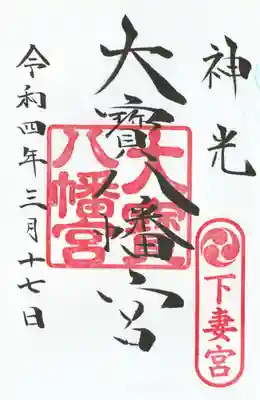 神光
下妻宮
大寶八幡宮
大寶八幡宮
令和四年三月十七日